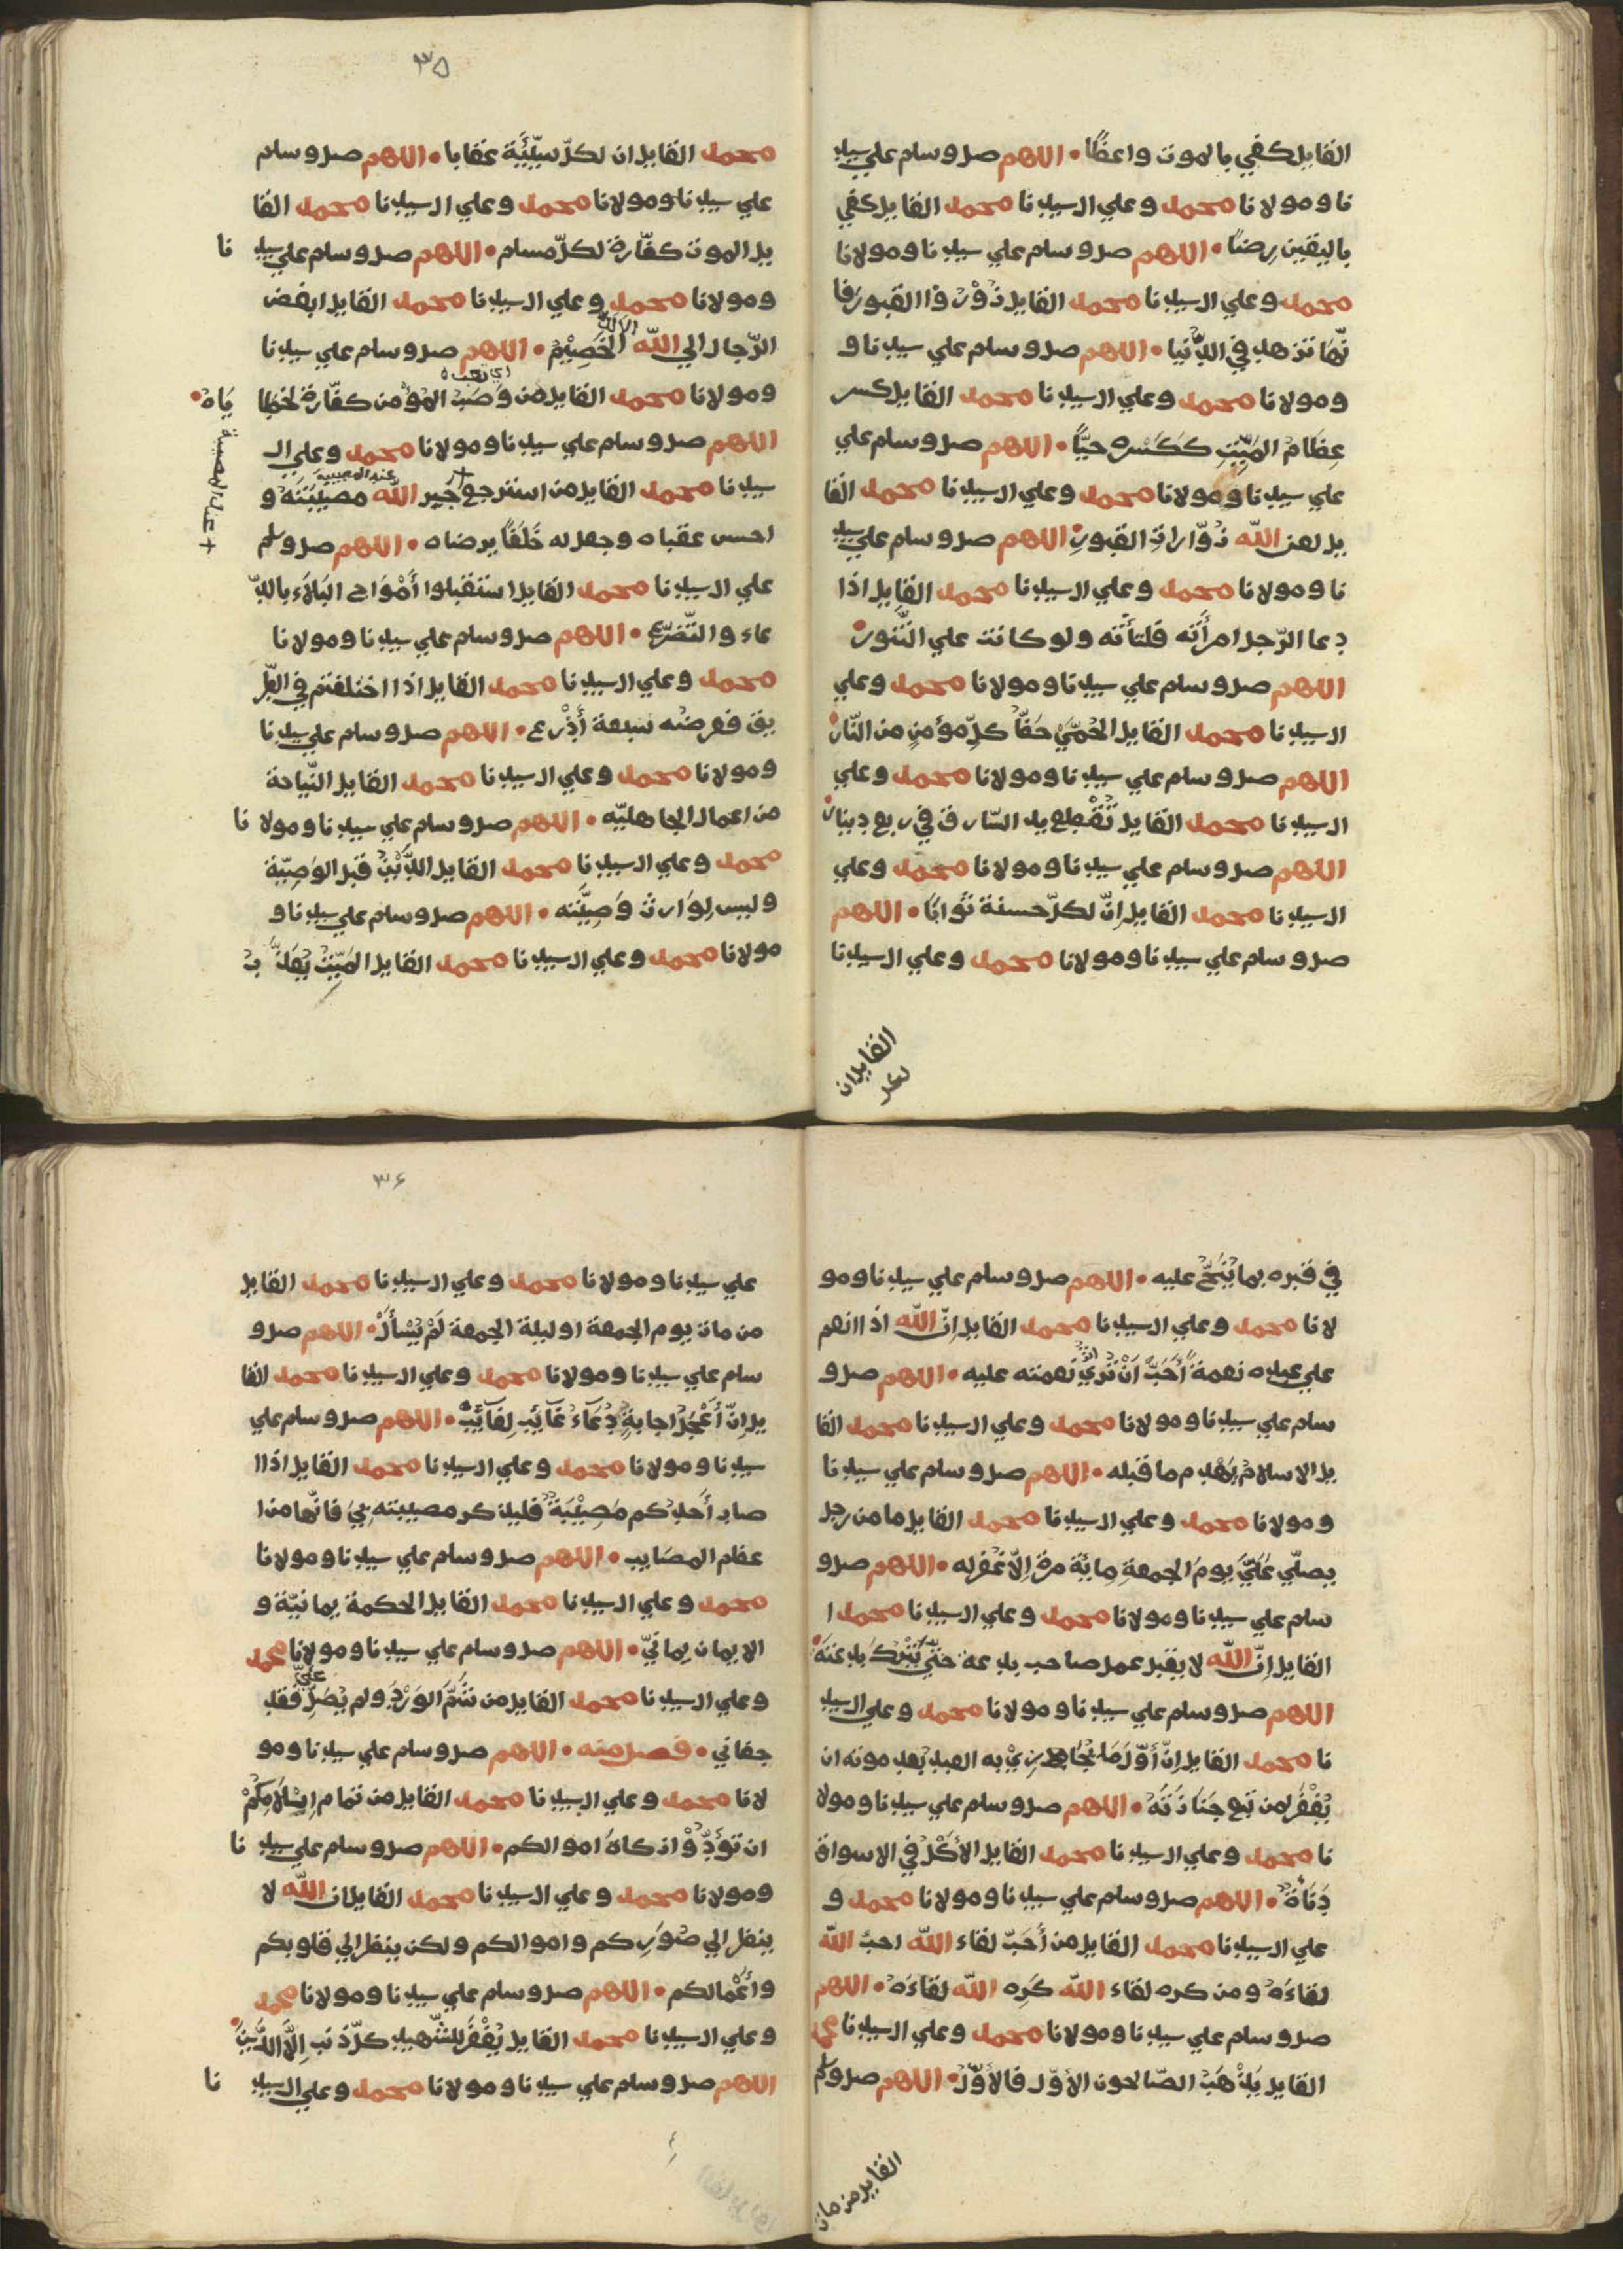 القايل كفي بالموت واعظًا • اللهم صل وسلم علي سيد
نا ومولانا محمد وعلي ال سيدنا محمد القايل كفي
باليقين رضًا • اللهم صل وسلم علي سيدنا ومولانا
محمد وعلي ال سيدنا محمد القايل زُوْرُوْا القبور فا
نّها تزهد في الدُّنيا • اللهم صل وسلم علي سيدنا و
ومولانا محمد وعلي ال سيدنا محمد القايل كسر
عِظَامِ المَيِّتِ كَكَسْرِه حيًّا • اللهم صل وسلم علي
علي سيدنا ومولانا محمد وعلي ال سيدنا محمد القا
يل لعن الله زوّاراتِ القبورِ اللهم صل وسلم علي سيد
نا ومولانا محمد وعلي ال سيدنا محمد القايل اذا
دعا الرّجل امرأتَه فلتأته ولو كانت علي التّنور
اللهم صل وسلم علي سيدنا ومولانا محمد وعلي
ال سيدنا محمد القايل الحُمّيٰ حَظّ كلِّ مؤمنٍ من النّار
اللهم صل وسلم علي سيدنا ومولانا محمد وعلي
ال سيدنا محمد القايل تُقْطع يد السّارق في ربع دينار
اللهم صل وسلم علي سيدنا ومولانا محمد وعلي
ال سيدنا محمد القايل اِنّ لكلّ حسنة ثوابًا • اللهم
صل وسلم علي سيدنا ومولانا محمد وعلي ال سيدنا
القايل ان
لكل
٣٥
محمد القايل ان لكلّ سيِّئَة عقابا • اللهم صل وسلم
علي سيدنا ومولانا محمد وعلي ال سيدنا محمد القا
يل الموت كفّارة لكلّ مسلم • اللهم صل وسلم علي سيد نا
ومولانا محمد وعلي ال سيدنا محمد القايل ابغض
الرّجال الي الله الالدّ الخَصِيْمُ • اللهم صل وسلم علي سيدنا
ومولانا محمد القايل من وَصَبُ المؤمن كفّارة لخطا يَاهُ •
اي تعبه
اللهم صل وسلم علي سيدنا ومولانا محمد وعلي ال
سيدنا محمد القايل من استرجع جبر الله مصيبَتَهُ و
عند المصيبة
+ عند المصيبة
احسن عقباه وجعل له خَلَفًا يرضاه • اللهم صل وسلم
علي ال سيدنا محمد القايل استقبلوا أمْوَاج البَلَاء بالدّ
عاء والتّضرّع • اللهم صل وسلم علي سيدنا ومولانا
محمد وعلي ال سيدنا محمد القايل اذا اختلفتم في الطّر
يق فعرضه سبعة أذْرع • اللهم صل وسلم علي سيدنا
ومولانا محمد وعلي ال سيدنا محمد القايل النّياحة
من اعمال الجاهليّه • اللهم صل وسلم علي سيدنا ومولا نا
محمد وعلي ال سيدنا محمد القايل الدَّيْنُ قبل الوَصِيّة
وليس لِوَارث وَصِيَّته • اللهم صل وسلم علي سيدنا و
مولانا محمد وعلي ال سيدنا محمد القايل المَيِّتُ يُعَذَّ بُ
في قبره بما يُنَحُ عليه • اللهم صل وسلم علي سيدنا ومو
لانا محمد وعلي ال سيدنا محمد القايل اِنّ الله اذا انعم
علي عبده نعمةً أَحَبَّ اَنْ تُريٰ نعمته عليه • اللهم صل و
سلم علي سيدنا ومولانا محمد وعلي ال سيدنا محمد القا
يل الاسلامُ يَهْدِم ما قبله • اللهم صل وسلم علي سيدنا
ومولانا محمد وعلي ال سيدنا محمد القايل ما من رجل
يصلّي عَلَيَّ يومَ الجمعةِ مِائَة مرة اِلّا غفر له • اللهم صل و
سلم علي سيدنا ومولانا محمد وعلي ال سيدنا محمد ا
القايل اِنّ الله لا يقبل عمل صاحب بدعة حتّي يَتْرُك بدعتَهُ
اللهم صل وسلم علي سيدنا ومولانا محمد وعلي ال سيد
نا محمد القايل اِنّ أوّلَ ما يُجَازيٰ به العبد بعد موته ان
يُغْفَرَ لمن تبع جَنَازتَهُ • اللهم صل وسلم علي سيدنا ومولا
نا محمد وعلي ال سيدنا محمد القايل الأكْلُ في الاسواق
دَنَاءَةٌ • اللهم صل وسلم علي سيدنا ومولانا محمد و
علي ال سيدنا محمد القايل من أَحَبّ لقاء الله احبّ الله
لقاءَهُ ومن كره لقاء الله كَرِه الله لقاءَهُ • اللهم
صل وسلم علي سيدنا ومولانا محمد وعلي ال سيدنا محمد
القايل يَذْهَبُ الصّالحون الأوّل فالأوّلُ • اللهم صل وسلم
القايل من مات
٣٦
علي سيدنا ومولانا محمد وعلي ال سيدنا محمد القايل
من مات يوم الجمعة او ليلة الجمعة لَمْ يُسْأَلْ • اللهم صل و
سلم علي سيدنا ومولانا محمد وعلي ال سيدنا محمد القا
يل اِنّ أَعْجَلَ اجابةٍ دُعَاءُ غَائِب لِغَائِبٍ • اللهم صل وسلم علي
سيدنا ومولانا محمد وعلي ال سيدنا محمد القايل اذا ا
صاب أَحدكم مُصِيْبَةٌ فليذكر مصيبته بي فانّها من ا
عظم المصَايب • اللهم صل وسلم علي سيدنا ومولانا
محمد وعلي ال سيدنا محمد القايل الحكمة يمانيّة و
الايمان يمانيّ • اللهم صل وسلم علي سيدنا ومولانا محمد
وعلي ال سيدنا محمد القايل من شَمَّ الوَرْدَ ولم يُصَلِّ عليّ فقد
جفاني • فصل منه • اللهم صل وسلم علي سيدنا ومو
لانا محمد وعلي ال سيدنا محمد القايل من تمام اِسْلَامِكُمْ
ان تؤدّوْا زكاة اموالكم • اللهم صل وسلم علي سيد نا
ومولانا محمد وعلي ال سيدنا محمد القايل ان الله لا
ينظر الي صُوَرِكم واموالكم ولكن ينظر الي قلوبكم
وأَعْمالكم • اللهم صل وسلم علي سيدنا ومولانا محمد
وعلي ال سيدنا محمد القايل يُغْفَرُ للشّهيد كلّ ذنب اِلَّا الدَّيْنَ •
اللهم صل وسلم علي سيدنا ومولانا محمد وعلي ال سيد نا